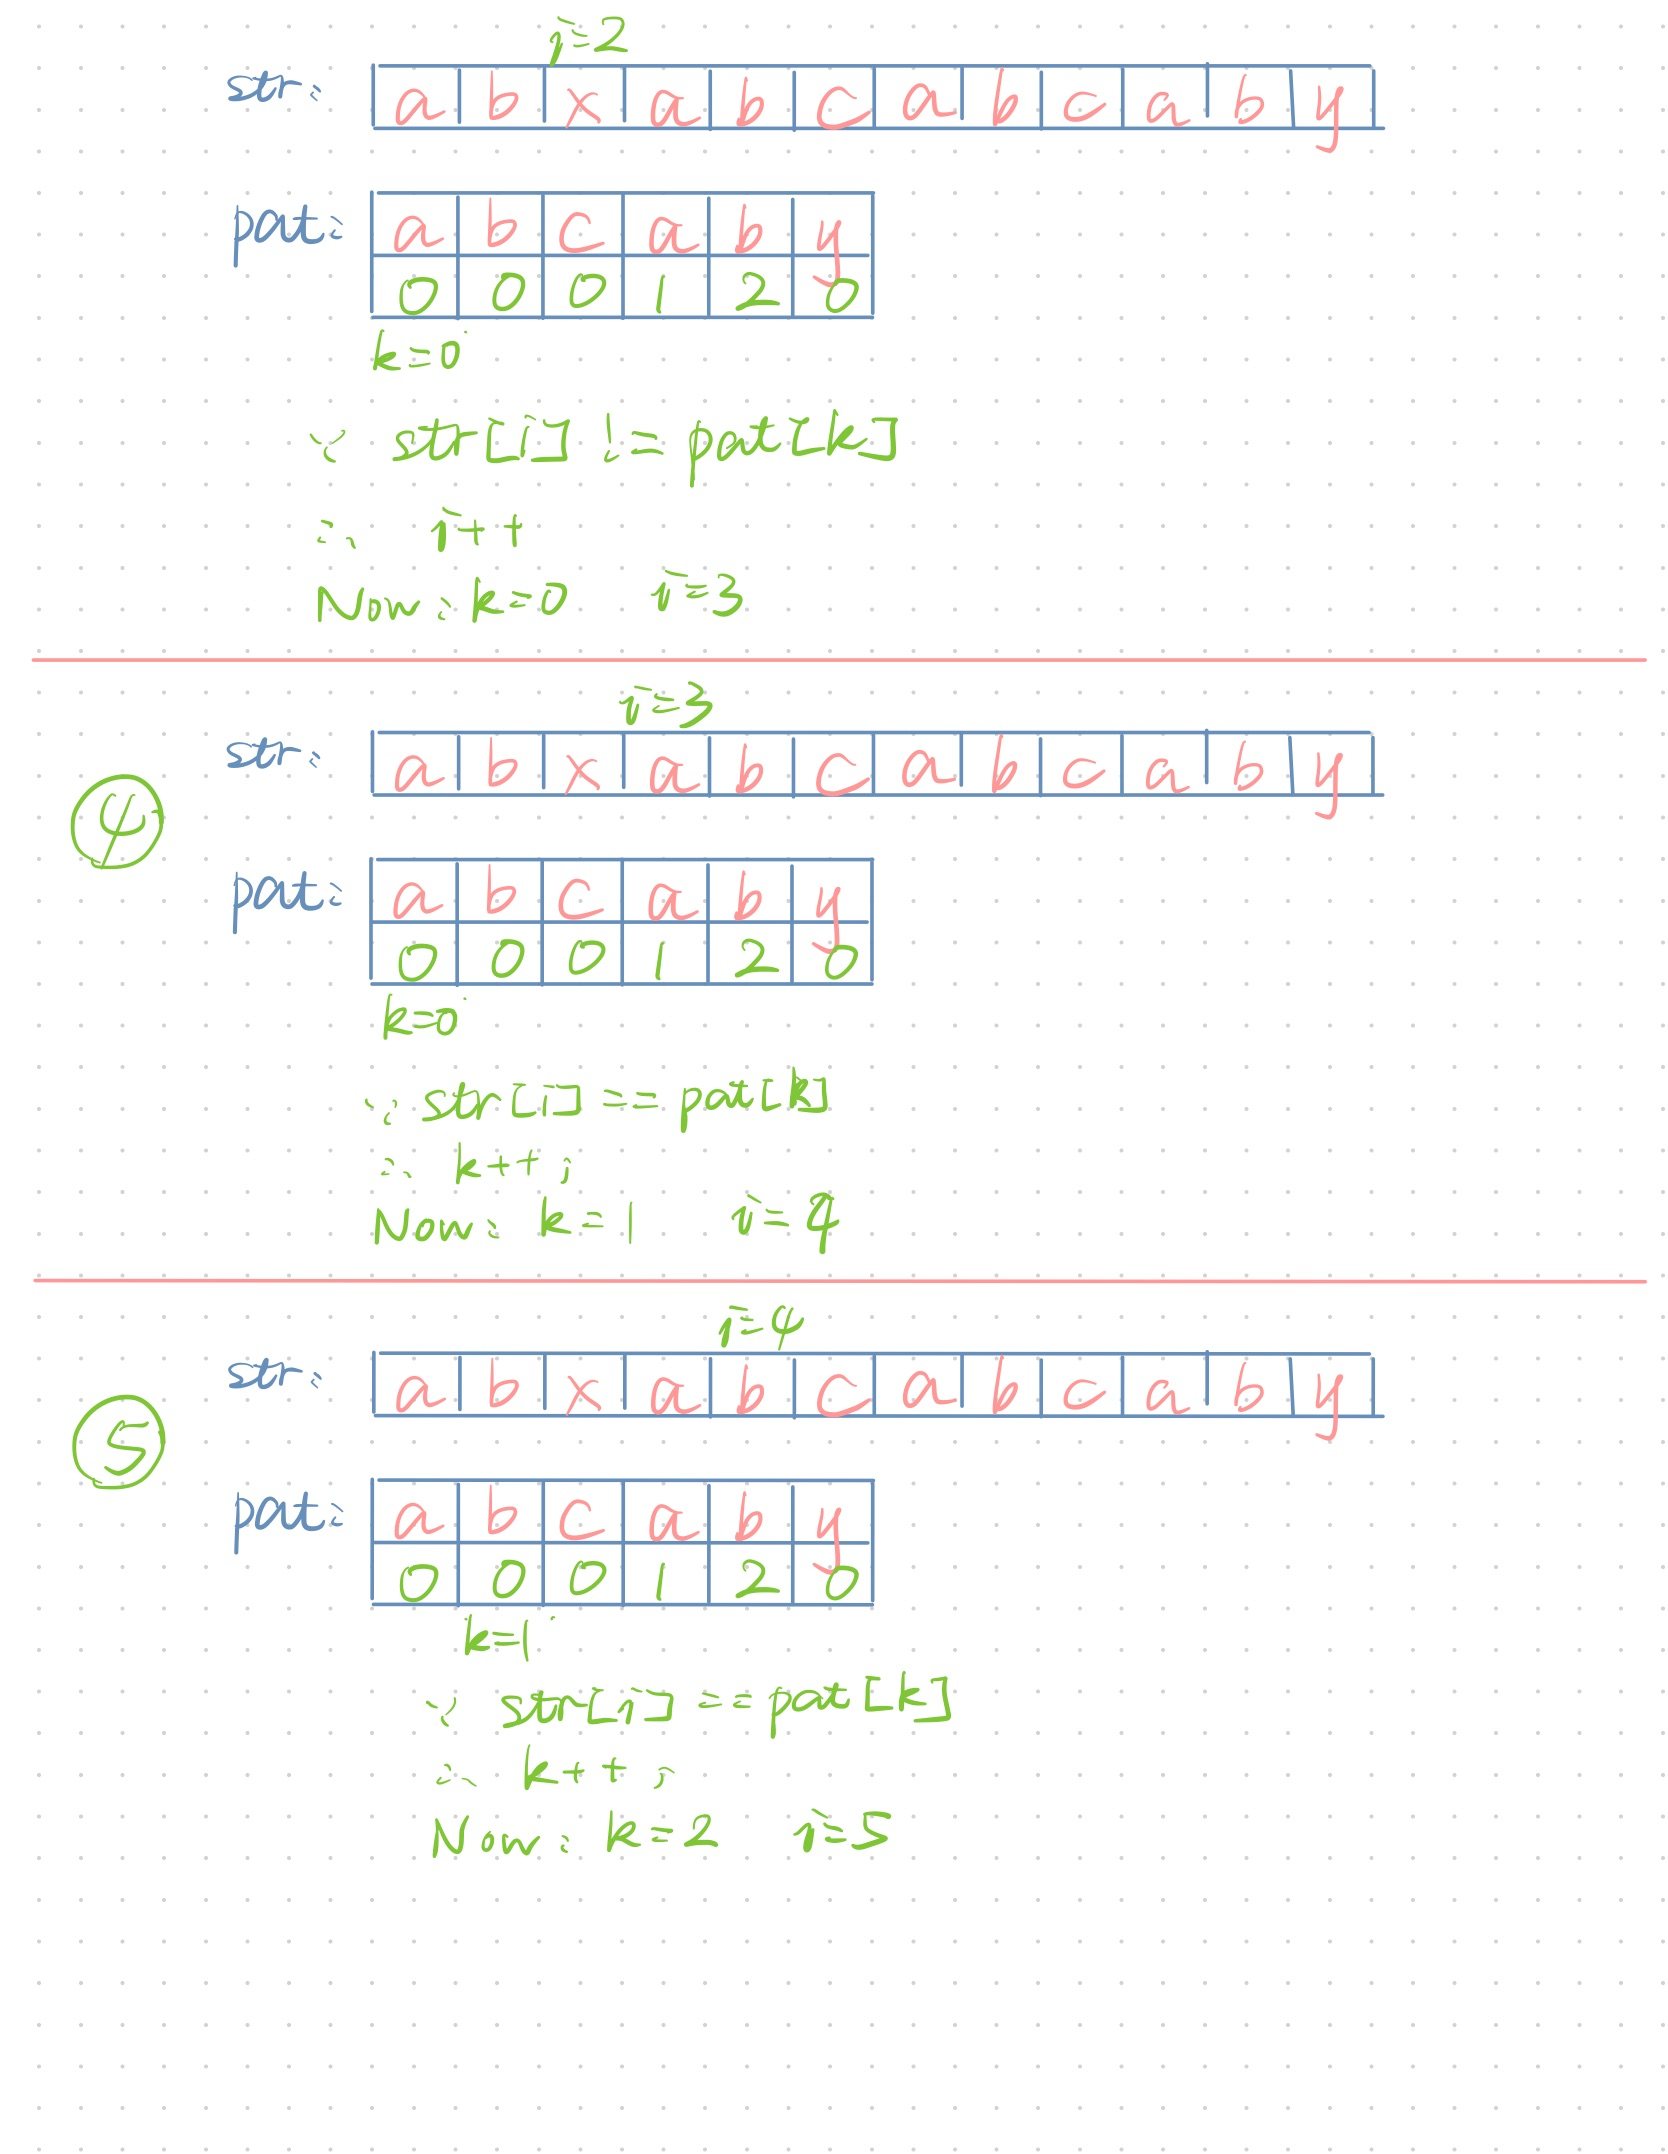 i=2
str: a b x a b c a b c a b y
pat: a b c a b y
0 0 0 1 2 0
k=0
∵ str[i] != pat[k]
∴ i++
Now: k=0 i=3
i=3
str: a b x a b c a b c a b y
④
pat: a b c a b y
0 0 0 1 2 0
k=0
∵ str[i] == pat[k]
∴ k++;
Now: k=1 i=4
i=4
str: a b x a b c a b c a b y
⑤
pat: a b c a b y
0 0 0 1 2 0
k=1
∵ str[i] == pat[k]
∴ k++;
Now: k=2 i=5